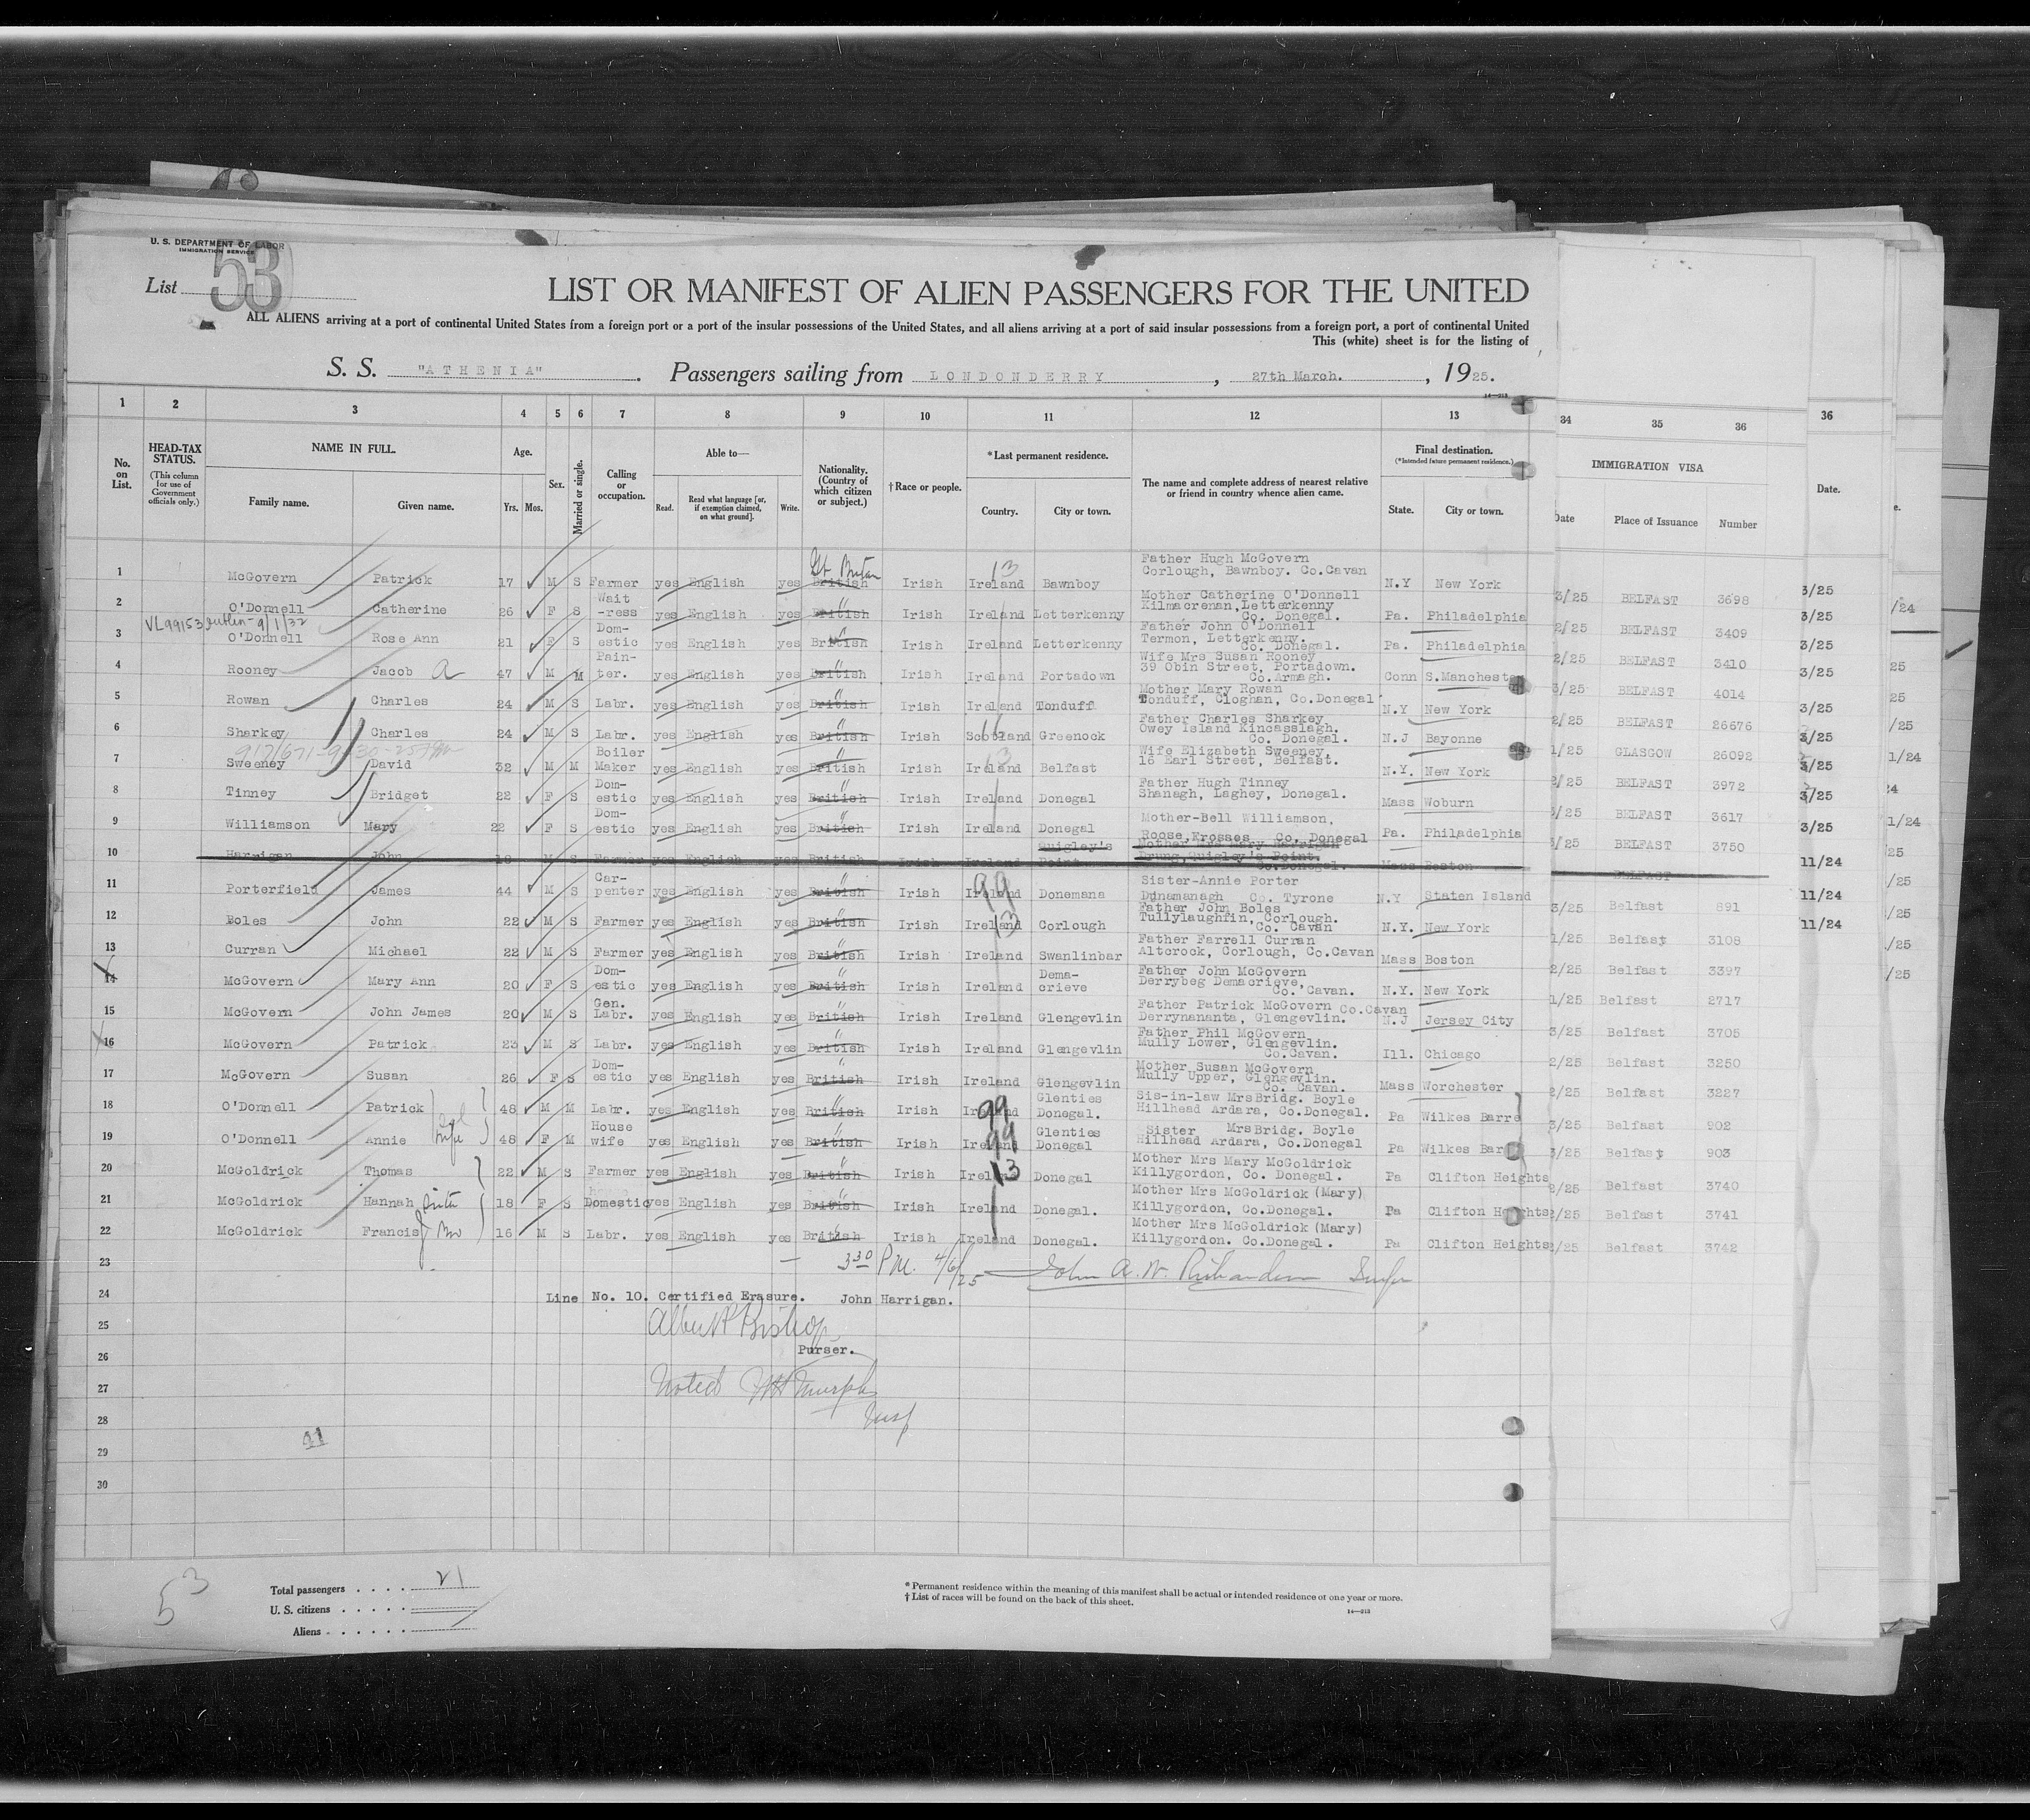 U. S. DEPARTMENT OF LABOR
IMMIGRATION SERVICE
List 53
LIST OR MANIFEST OF ALIEN PASSENGERS FOR THE UNITED
ALL ALIENS arriving at a port of continental United States from a foreign port or a port of the insular possessions of the United States, and all aliens arriving at a port of said insular possessions from a foreign port, a port of continental United
This (white) sheet is for the listing of
S. S. "ATHENIA". Passengers sailing from LONDONDERRY, 27th March., 1925.
14—213
1 2 3 4 5 6 7 8 9 10 11 12 13 34 35 36 36
No. on List. HEAD-TAX STATUS. (This column for use of Government officials only.) NAME IN FULL. Family name. Given name. Age. Yrs. Mos. Sex. Married or single. Calling or occupation. Able to— Read. Read what language [or, if exemption claimed, on what ground]. Write. Nationality. (Country of which citizen or subject.) †Race or people. *Last permanent residence. Country. City or town. The name and complete address of nearest relative or friend in country whence alien came. Final destination. (*Intended future permanent residence.) State. City or town. IMMIGRATION VISA Date Place of Issuance Number Date.
1 McGovern Patrick 17 M S Farmer yes English yes British Gt Britain Irish Ireland 13 Bawnboy Father Hugh McGovern Corlough, Bawnboy. Co.Cavan N.Y New York 3/25 BELFAST 3698
2 O'Donnell Catherine 26 F S Wait-ress yes English yes British " Irish Ireland Letterkenny Mother Catherine O'Donnell Kilmacrenan, Letterkenny Co. Donegal. Pa. Philadelphia 2/25 BELFAST 3409
VL99153 Dublin-9/1/32
3 O'Donnell Rose Ann 21 F S Dom-estic yes English yes British " Irish Ireland Letterkenny Father John O'Donnell Termon, Letterkenny. Co. Donegal. Pa. Philadelphia 2/25 BELFAST 3410
4 Rooney Jacob A 47 M M Pain-ter. yes English yes British " Irish Ireland Portadown Wife Mrs Susan Rooney 39 Obin Street, Portadown. Co.Armagh. Conn S.Manchester 3/25 BELFAST 4014
5 Rowan Charles 24 M S Labr. yes English yes British " Irish Ireland Tonduff Mother Mary Rowan Tonduff, Cloghan, Co.Donegal N.Y New York 2/25 BELFAST 26676
6 Sharkey Charles 24 M S Labr. yes English yes British " Irish Scotland Greenock Father Charles Sharkey Owey Island Kincasslagh. Co. Donegal. N.J Bayonne 1/25 GLASGOW 26092
7 Sweeney David 32 M M Boiler Maker yes English yes British " Irish Ireland 13 Belfast Wife Elizabeth Sweeney, 16 Earl Street, Belfast. N.Y. New York 2/25 BELFAST 3972
8 Tinney Bridget 22 F S Dom-estic yes English yes British " Irish Ireland Donegal Father Hugh Tinney Shanagh, Laghey, Donegal. Mass Woburn BELFAST 3617
9 Williamson Mary 22 F S Dom-estic yes English yes British " Irish Ireland Donegal Mother-Bell Williamson, Roose, Krosses Co. Donegal Pa. Philadelphia 3/25 BELFAST 3750
10 Harrigan John 18 M S Farmer yes English yes British Irish Ireland Quigley's Point Mother Mrs Mary Harrigan Drung, Quigley's Point. Co.Donegal. Mass Boston BELFAST
11 Porterfield James 44 M S Car-penter yes English yes British " Irish Ireland 99 Donemana Sister-Annie Porter Dunamanagh Co. Tyrone N.Y Staten Island 3/25 Belfast 891
12 Boles John 22 M S Farmer yes English yes British " Irish Ireland 13 Corlough Father John Boles Tullylaughfin, Corlough. Co. Cavan N.Y. New York 1/25 Belfast 3108
13 Curran Michael 22 M S Farmer yes English yes British " Irish Ireland Swanlinbar Father Farrell Curran Altcrock, Corlough, Co.Cavan Mass Boston 2/25 Belfast 3397
14 McGovern Mary Ann 20 F S Dom-estic yes English yes British " Irish Ireland Dema-crieve Father John McGovern Derrybeg Demacrieve, Co. Cavan. N.Y. New York 1/25 Belfast 2717
15 McGovern John James 20 M S Gen. Labr. yes English yes British " Irish Ireland Glengevlin Father Patrick McGovern Co.Cavan Derrynananta, Glengevlin. N.J Jersey City 3/25 Belfast 3705
16 McGovern Patrick 23 M S Labr. yes English yes British " Irish Ireland Glengevlin Father Phil McGovern Mully Lower, Glengevlin. Co.Cavan. Ill. Chicago 2/25 Belfast 3250
17 McGovern Susan 26 F S Dom-estic yes English yes British " Irish Ireland Glengevlin Mother Susan McGovern Mully Upper, Glengevlin. Co. Cavan. Mass Worchester 2/25 Belfast 3227
18 O'Donnell Patrick 48 M M Labr. yes English yes British " Irish Ireland 99 Glenties Donegal. Sis-in-law MrsBridg. Boyle Hillhead Ardara, Co.Donegal. Pa Wilkes Barre 3/25 Belfast 902
19 O'Donnell Annie wife 48 F M House wife yes English yes British " Irish Ireland 99 Glenties Donegal Sister MrsBridg. Boyle Hillhead Ardara, Co.Donegal Pa Wilkes Bar 3/25 Belfast 903
20 McGoldrick Thomas 22 M S Farmer yes English yes British " Irish Ireland 13 Donegal Mother Mrs Mary McGoldrick Killygordon, Co. Donegal. Pa Clifton Heights 2/25 Belfast 3740
21 McGoldrick Hannah sister 18 F S Domestic yes English yes British " Irish Ireland Donegal. Mother Mrs McGoldrick (Mary) Killygordon, Co.Donegal. Pa Clifton Heights 2/25 Belfast 3741
22 McGoldrick Francis Bro 16 M S Labr. yes English yes British " Irish Ireland Donegal. Mother Mrs McGoldrick (Mary) Killygordon. Co.Donegal. Pa Clifton Heights 2/25 Belfast 3742
23 3 30 P.M. 4/6/25 John A. W. Richardson
24 Line No. 10. Certified Erasure. John Harrigan.
25 Albert P Bishop
26 Purser.
27 Noted Murphy
28 Insp
29 41
30
53
Total passengers . . . . 21
U. S. citizens . . . . .
Aliens . . . . . .
* Permanent residence within the meaning of this manifest shall be actual or intended residence of one year or more.
† List of races will be found on the back of this sheet.
14—213